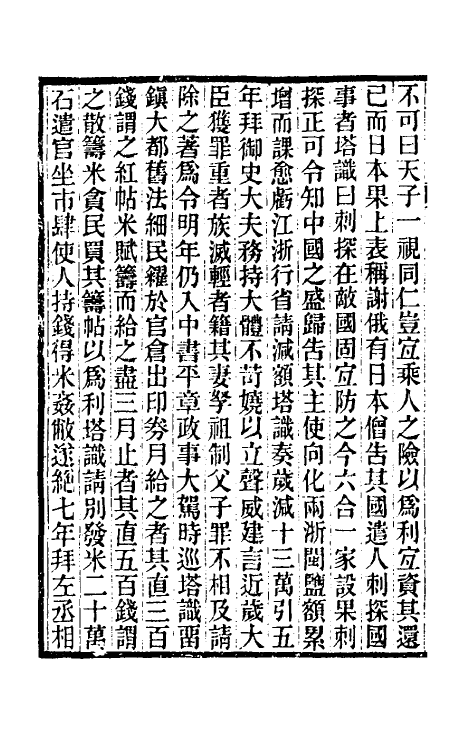 不可曰天子一視同仁豈宜乘人之險以爲利宜資其還
已而日本果上表稱謝俄有日本僧告其國遣人刺探國
事者塔識曰刺探在敵國固宜防之今六合一家設果刺
探正可令知中國之盛歸告其主使向化兩浙閩鹽額累
增而課愈虧江浙行省請減額塔識奏歲減十三萬引五
年拜御史大夫務持大體不苛嬈以立聲威建言近歲大
臣獲罪重者族滅輕者籍其妻孥祖制父子罪不相及請
除之著爲令明年仍入中書平章政事大駕時巡塔識畱
鎭大都舊法細民糴於官倉出印劵月給之者其直三百
錢謂之紅帖米賦籌而給之盡三月止者其直五百錢謂
之散籌米貪民買其籌帖以爲利塔識請别發米二十萬
石遣官坐市肆使人持錢得米姦敝遂絶七年拜左丞相